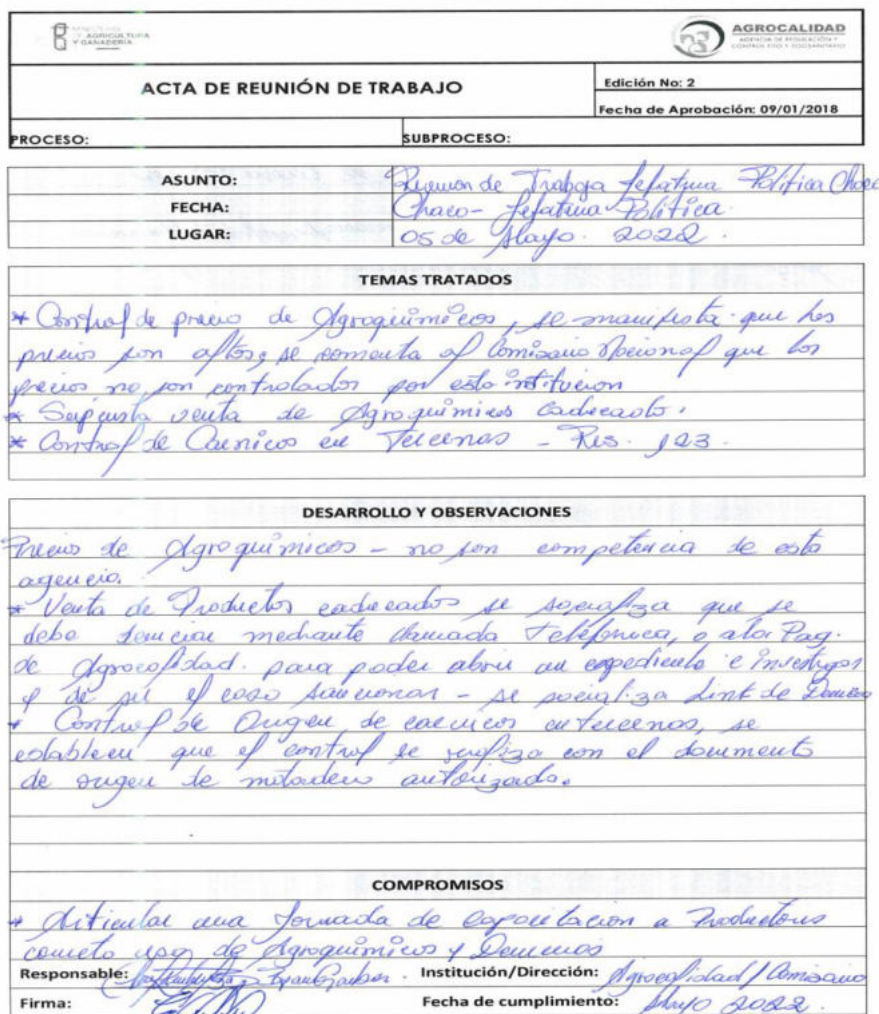 MINISTERIO
DE AGRICULTURA
Y GANADERÍA
AGROCALIDAD
AGENCIA DE REGULACIÓN Y
CONTROL FITO Y ZOOSANITARIO
ACTA DE REUNIÓN DE TRABAJO
Edición No: 2
Fecha de Aprobación: 09/01/2018
PROCESO: SUBPROCESO:
ASUNTO: Reunion de Trabajo Jefatura Politica Chaco
FECHA: Chaco - Jefatura Politica.
LUGAR: 05 de Mayo. 2022.
TEMAS TRATADOS
* Control de precio de Agroquimicos, se manifiesta que los
precios son altos, se comenta al Comisario Nacional que los
precios no son controlados por esta institucion
* Supuesta venta de Agroquimicos caducados.
* Control de Carnicos en Tercenas - Res. 123.
DESARROLLO Y OBSERVACIONES
Precios de Agroquimicos - no son competencia de esta
agencia.
* Venta de Productos caducados se socializa que se
debe denunciar mediante llamada Telefonica, o a la Pag.
de Agrocalidad. para poder abrir un expediente e investigar
y de ser el caso sancionar - se socializa Link de
* Control de Origen de carnicos en tercenas, se
establecen que el control se realiza con el documento
de origen de matadero autorizado.
COMPROMISOS
* Articular una Jornada de Capacitacion a Productores
correcto uso de Agroquimicos y Denuncias
Responsable: Institución/Dirección: Agrocalidad / Comisario
Firma: Fecha de cumplimiento: Mayo 2022.